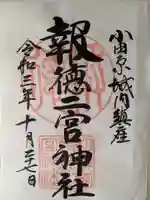 小田原城内鎮座
報徳二宮神社
令和三年十月三十七日